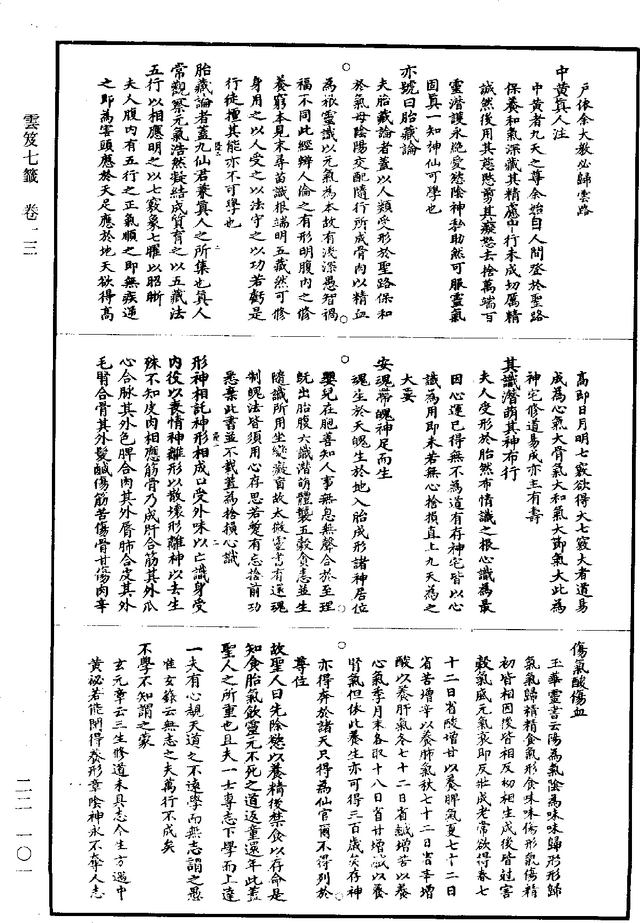 雲笈七籤 卷一三
二二 一〇一
戶依余大教必歸雲路
中黃真人注
中黃者九天之尊余始自人間登於聖路
保養和氣深藏其精處中行未成切屬精
誠然後用其慈慜剪其癡慾去捨萬端百
靈潛護永絕受慈陰神秘助然可服靈氣
固真一知神仙可學也
亦號曰胎藏論
夫胎藏論者蓋以人類受形於聖路保和
於氣母陰陽交配隨行所成骨肉以精血
為根靈識以元氣為本故有淺深愚智禍
福不同此經辯人倫之有形明腹內之修
養窮本見末尋苗識根端明五藏然可修
身用之以人受之以法守之以功若虧是
行徒擅其能亦不可學也
胎藏論者蓋九仙君兼真人之所集也真人
常觀察元氣浩然凝結成質育之以五藏法
五行以相應明之以七竅象七曜以昭晰
夫人腹內有五行之正氣順之即無疾逆
之即為害頭應於天足應於地天欲得高
高即日月明七竅欲得大七竅大者道易
成為心氣大骨氣大和氣大節氣大此為
神宅修道易成亦主有壽
其識潛萌其神布行
夫人受形於胎然布情識之根心識為最
因心運已得無不為道有存神宅皆以心
識為用即未若無心捨損直上九天為之
大要
安魂帶魄神足而生
魂生於天魄生於地入胎成形諸神居位
嬰兒在胞善知人事無息無聲合於至理
旣出胎腹六識潛萌體襲五穀貪恚並生
隨識所用坐變癡盲故太微靈書有還魂
制魄法皆須用心存思若蹔有忘捨前功
悉棄此書並不載蓋為捨損心識
形神相託神形相成口受外味以亡識身受
內役以喪情神離形以散壞形離神以去生
殊不知皮肉相應筋骨乃成肝合筋其外爪
心合脉其外色脾合肉其外脣肺合皮其外
毛腎合骨其外髮鹹傷筋苦傷骨甘傷肉辛
傷氣酸傷血
玉華靈書云陽為氣陰為味味歸形形歸
氣氣歸精精食氣形食味味傷形氣傷精
初皆相因後皆相反初相生成後皆尅害
穀氣盛元氣衰即反壯成老常欲得春七
十二日省酸增甘以養脾氣夏七十二日
省苦增辛以養肺氣秋七十二日省辛增
酸以養肝氣冬七十二日省鹹增苦以養
心氣季月末各取十八日省甘增鹹以養
腎氣但依此養生亦可得三百歲矣存神
亦得奔於諸天只得為仙官爾不得列於
尊位
故聖人曰先除慾以養精後禁食以存命是
知食胎氣飲靈元不死之道返童還年此蓋
聖人之所重也且夫一士專志下學而上達
一夫有心覩天道之不遠學而無志謂之愚
惟女錄云無志之夫萬行不成矣
不學不知謂之蒙
玄元章云三生修道未具志今生方遇中
黃祕若能閇得養形章陰神永不奪人志